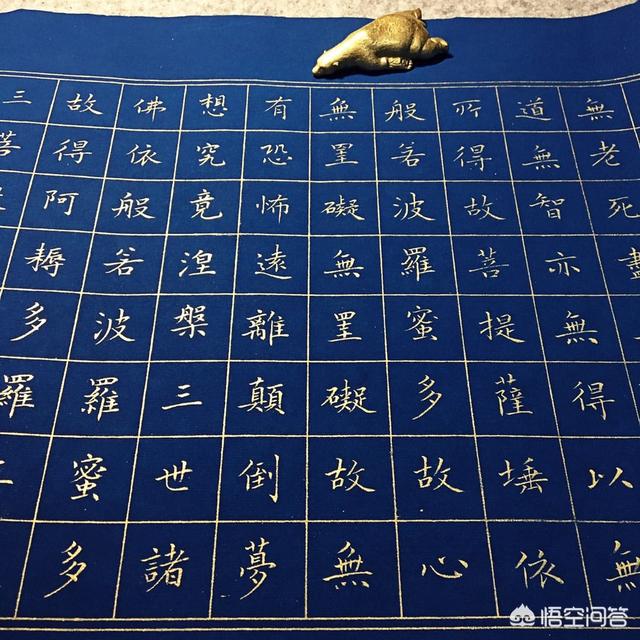 無老死盡
道無智亦無得以無
所得故菩提薩埵依
般若波羅蜜多故心
無罣礙無罣礙故無
有恐怖遠離顛倒夢
想究竟涅槃三世諸
佛依般若波羅蜜多
故得阿耨多羅三
三菩
悟空问答